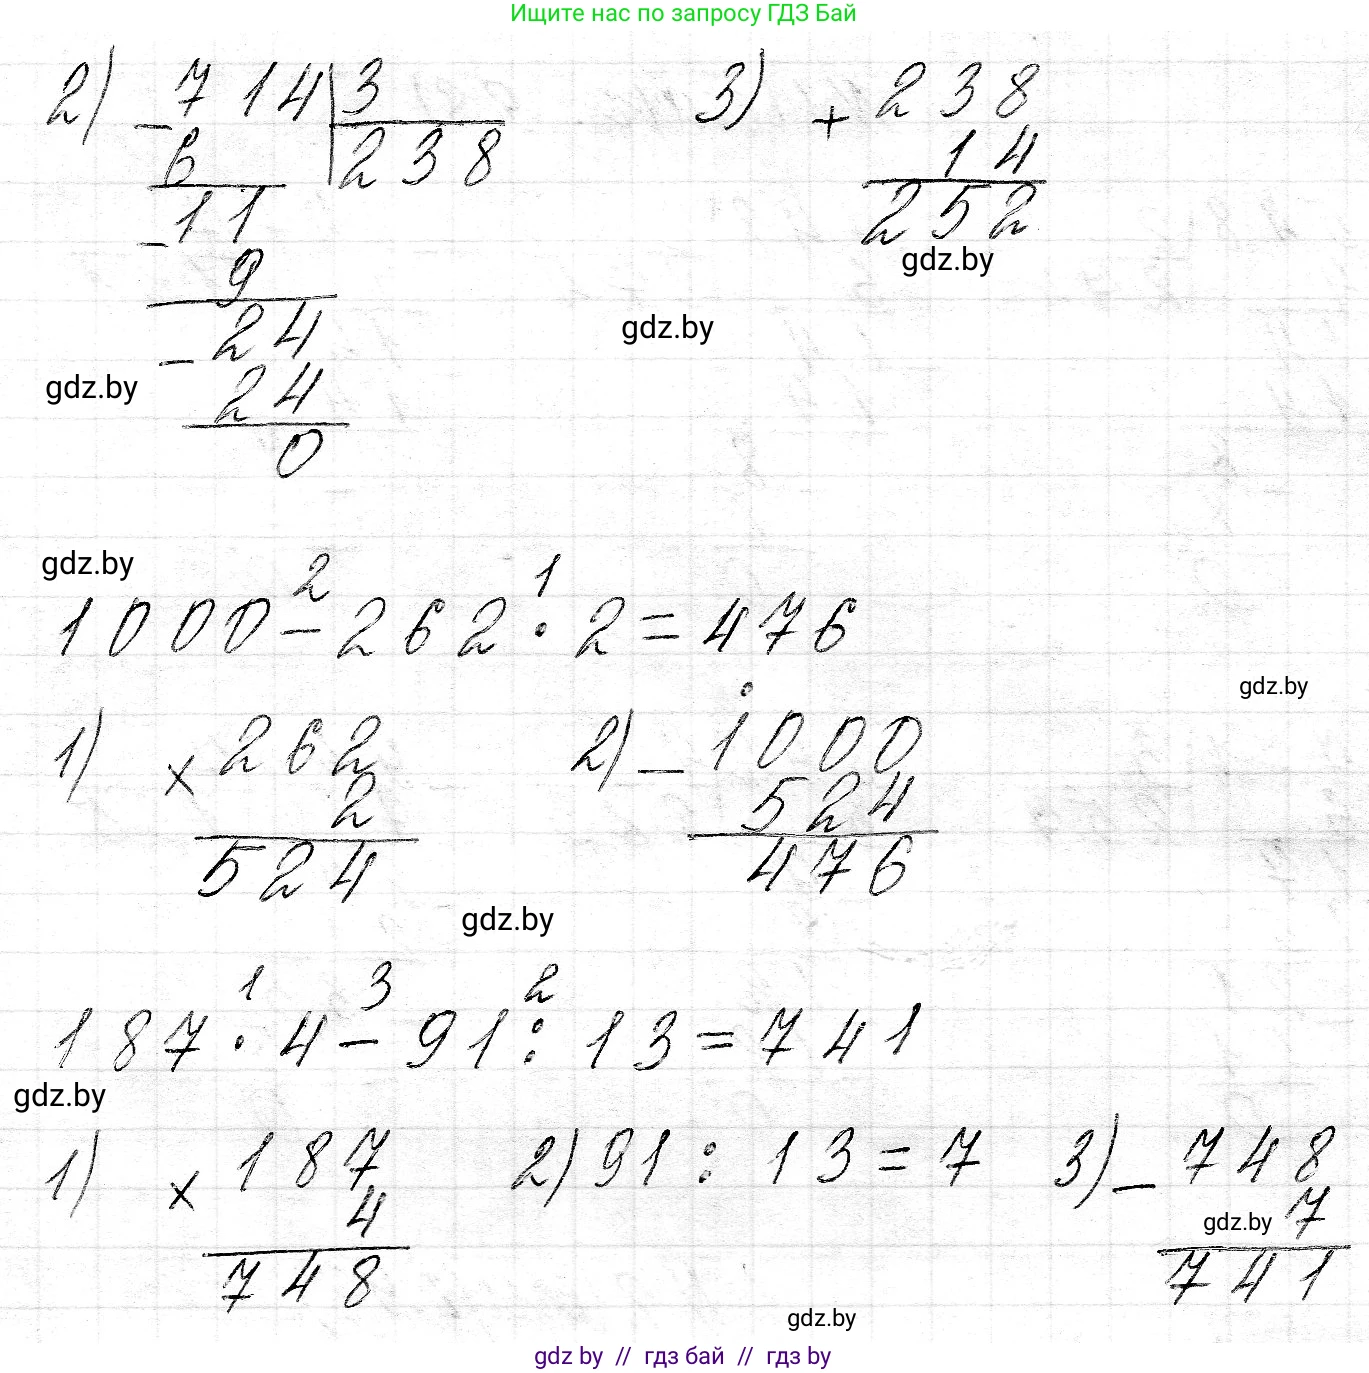 Ищите нас по запросу ГДЗ Бай
2) - 7 1 4 | 3
6 | 2 3 8
- 1 1
9
- 2 4
2 4
0
3) + 2 3 8
1 4
2 5 2
gdz.by
gdz.by
gdz.by
gdz.by
2 1
1 0 0 0 - 2 6 2 · 2 = 4 7 6
gdz.by
1) × 2 6 2
2
5 2 4
2) - 1 0 0 0
5 2 4
4 7 6
gdz.by
1 3 2
1 8 7 · 4 - 9 1 : 1 3 = 7 4 1
gdz.by
1) × 1 8 7
4
7 4 8
2) 9 1 : 1 3 = 7
3) - 7 4 8
gdz.by 7
7 4 1
gdz.by
gdz by // гдз бай // гдз by